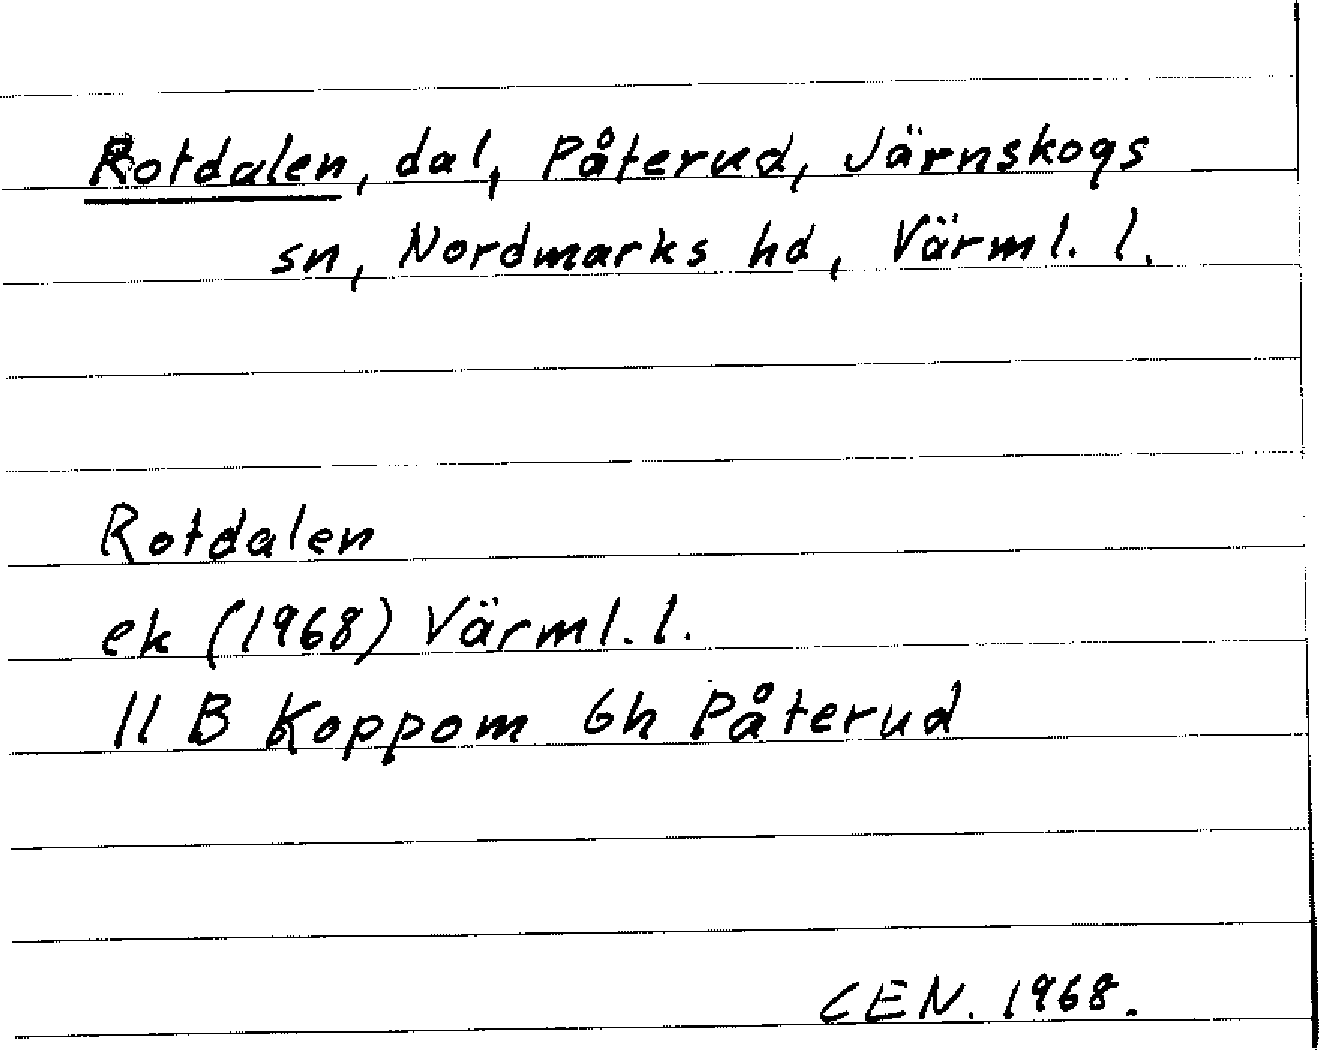 Rotdalen, dal, Påterud, Järnskogs
sn, Nordmarks hd, Värml. l.
Rotdalen
ek (1968) Värml. l.
11 B Koppom 6h Påterud
CEN. 1968.